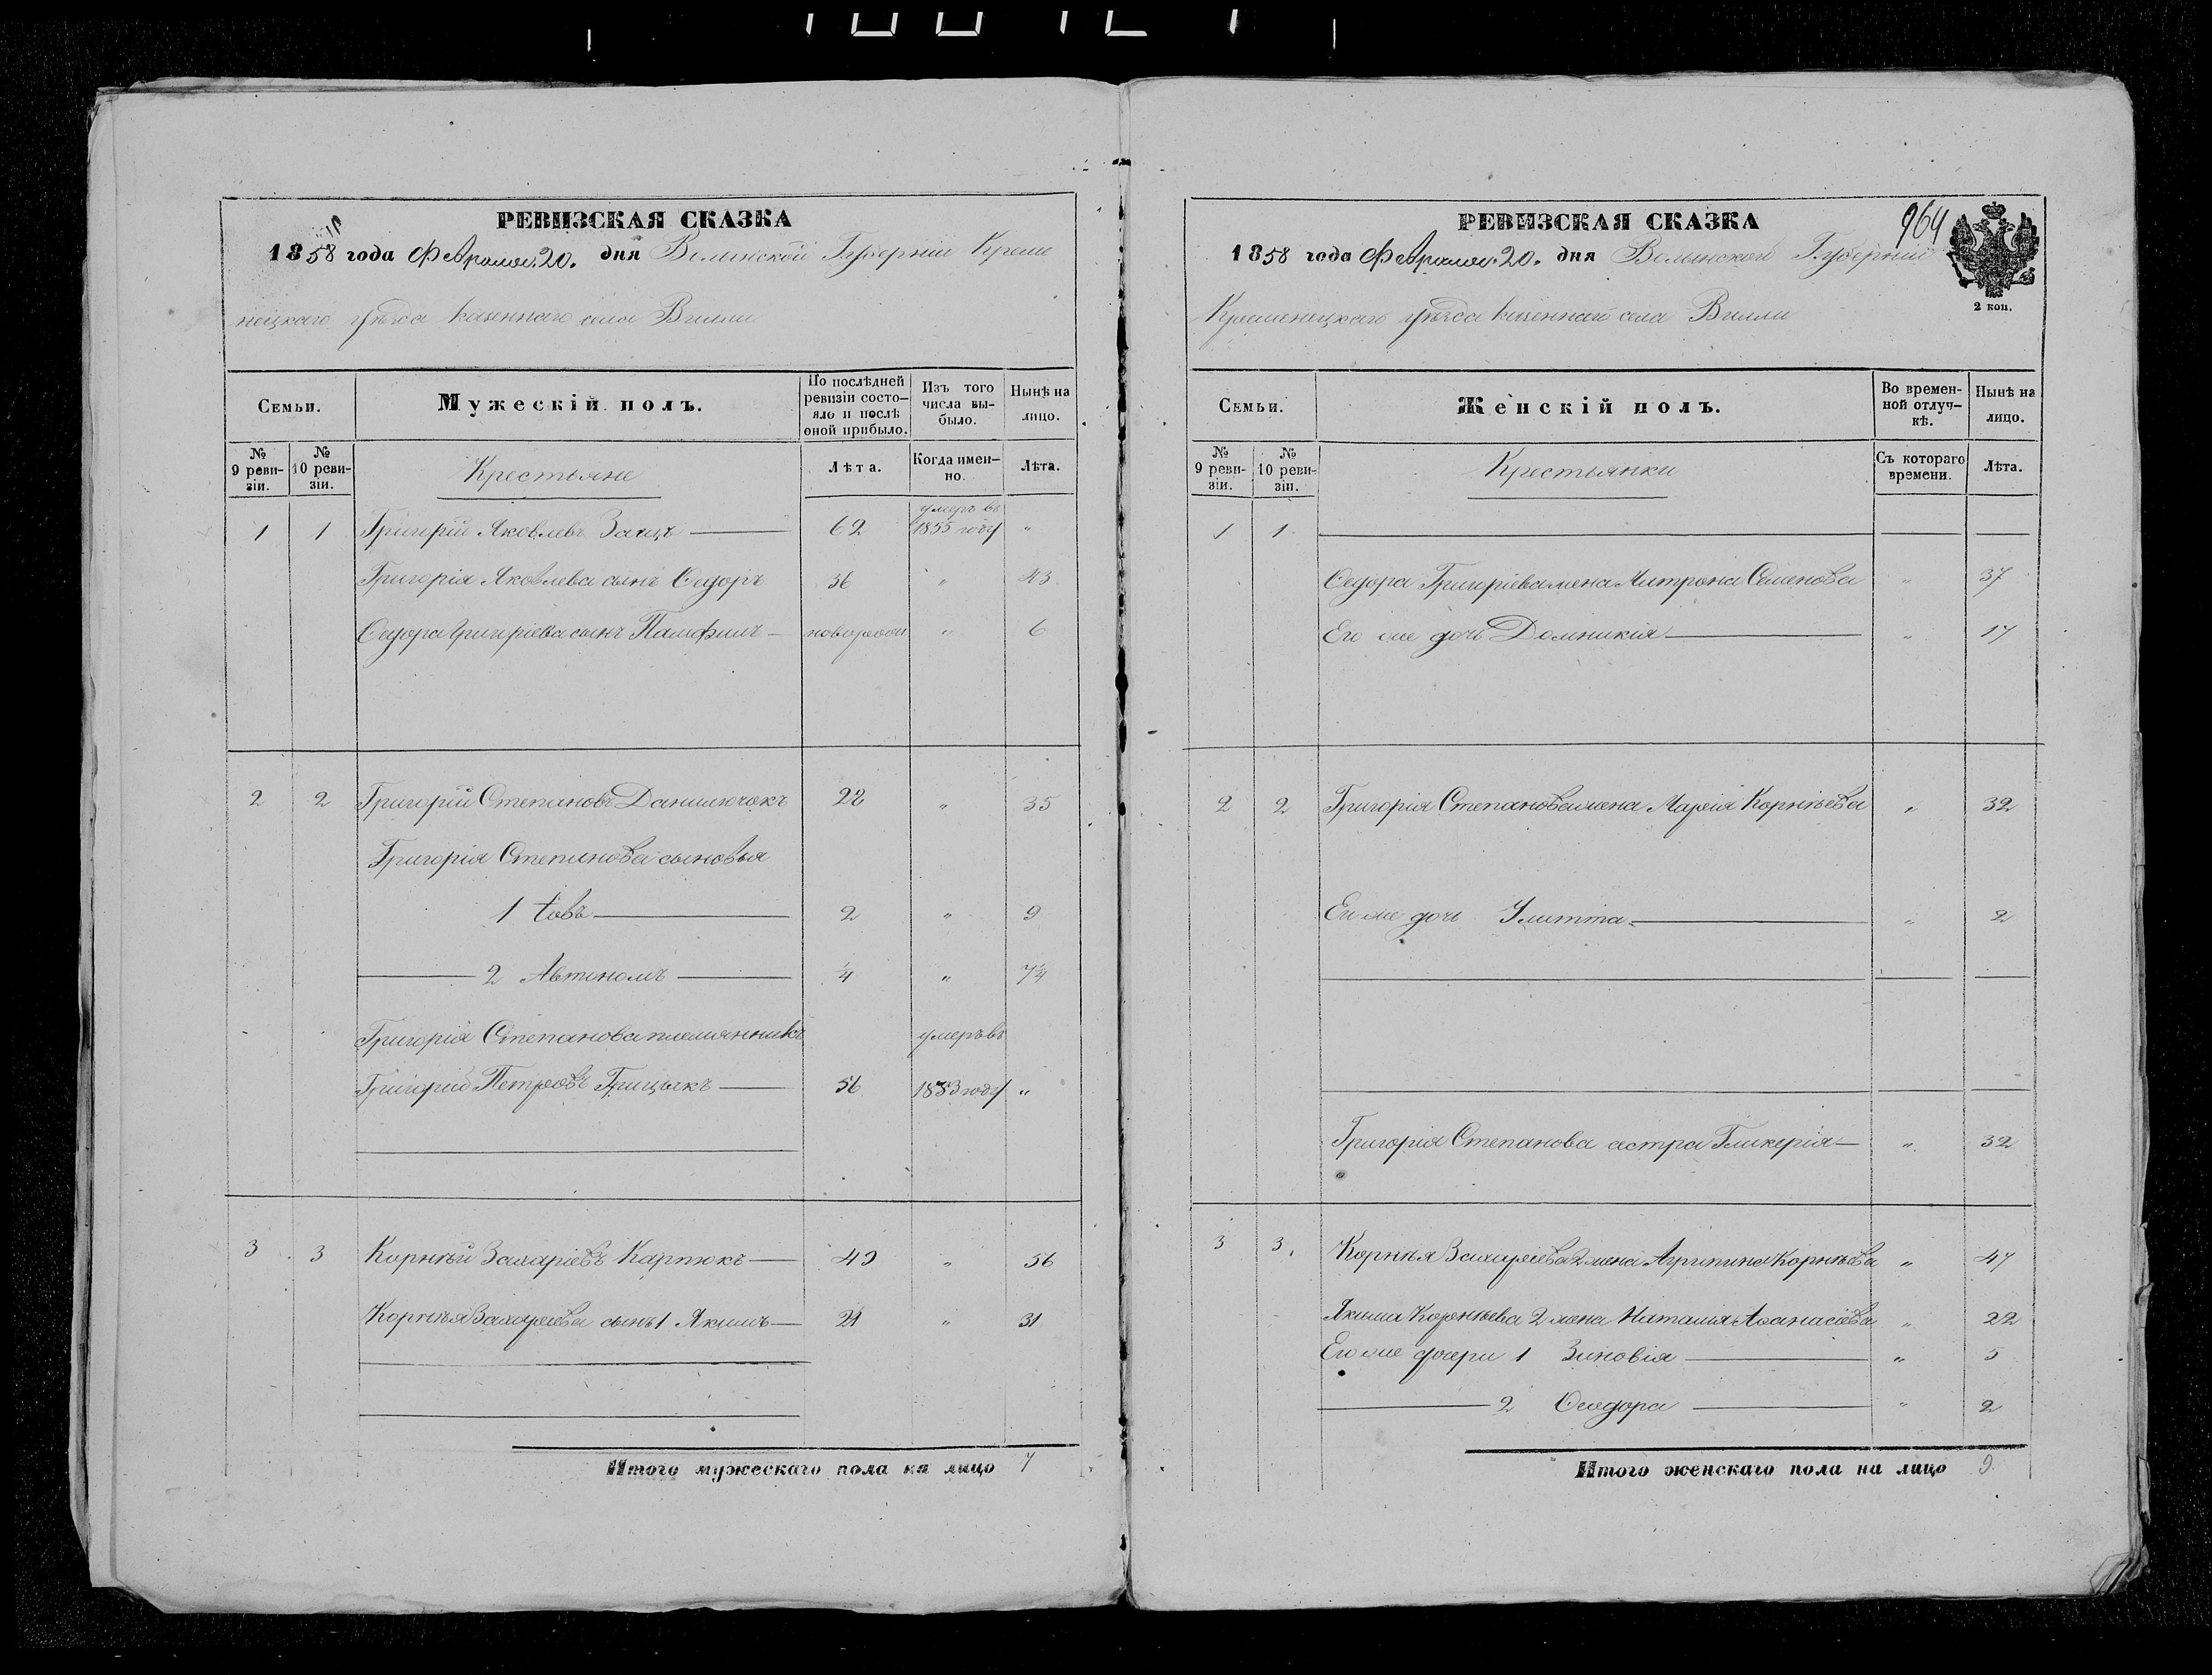 РЕВИЗСКАЯ СКАЗКА
1858 года Февраля 20. дня Волынской Губерніи Креме
нецкаго уѣзда казеннаго села Вилли
Семьи.
Мужескій полъ.
По послѣдней ревизіи состо-
яло и послѣ
оной прибыло.
Изъ того
числа вы-
было.
Нынѣ на
лицо.
№
9 реви-
зіи.
№
10 реви-
зіи.
Крестьяне
Лѣта.
Когда имен-
но.
Лѣта.
умеръ въ
1 1 Григорій Яковлевъ Заяцъ 62 1855 году "
Григорія Яковлева сынъ Ѳедоръ 36 " 43
Ѳедора Григоріева сынъ Памфилъ новорож " 6
2 2 Григорій Степановъ Данилючокъ 28 " 35
Григорія Степанова сыновья
1 Іовъ 2 " 9
2 Автономъ ¼ " 7¼
Григорія Степанова племянникъ умеръ въ
Григорій Петровъ Грицыкъ 56 1853 году "
3 3 Корнѣй Захаріевъ Карпюкъ 49 " 56
Корнѣя Захаріева сынъ 1 Якимъ 24 " 31
Итого мужескаго пола на лицо 7
РЕВИЗСКАЯ СКАЗКА
964
1858 года Февраля 20. дня Волынской Губерніи
Кременецкаго уѣзда казеннаго села Вилли
2 коп.
Семьи.
Женскій полъ.
Во времен-
ной отлуч-
кѣ.
Нынѣ на
лицо.
№
9 реви-
зіи.
№
10 реви-
зіи.
Крестьянки
Съ котораго
времени.
Лѣта.
1 1
Ѳедора Григоріева жена Матрона Семенова " 37
Его же дочь Домникія " 17
2 2 Григорія Степанова жена Марія Корнѣева " 32
Его же дочь Улитта " 2
Григорія Степанова сестра Гликерія " 32
3 3. Корнѣя Захаріева 2 жена Агрипина Корнѣева " 47
Якима Корнѣева 2 жена Наталія Аѳанасіева " 22
Его же дочери 1 Зиновія " 5
2 Ѳеодора " 2
Итого женскаго пола на лицо 9